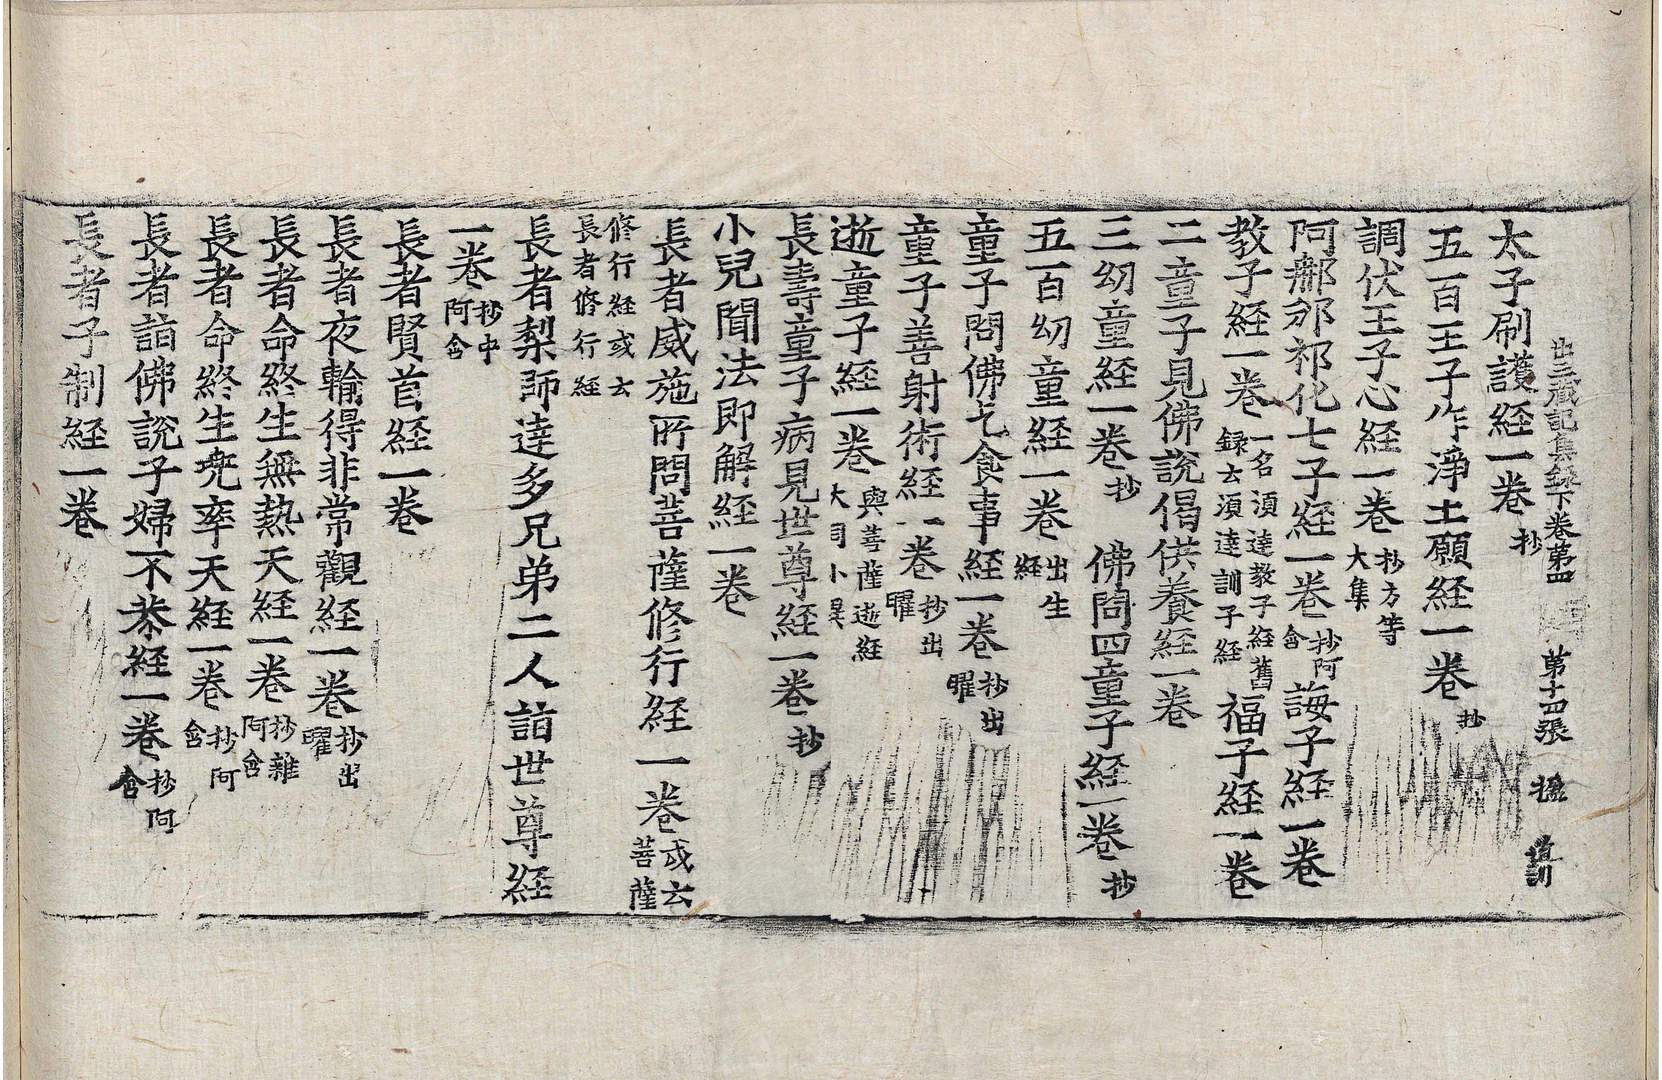 出三藏記集録下卷第四 第十四張
太子刷護経一卷抄
五百王子作淨土願経一卷抄
調伏王子心経一卷抄方等大集
阿鄁邠祁化七子経一卷抄阿含 誨子経一卷
教子経一卷一名須達教子経舊録云須達訓子経 福子経一卷
二童子見佛說偈供養経一卷
三幼童経一卷抄 佛問四童子経一卷抄
五百幼童経一卷出生経
童子問佛乞食事経一卷抄出曜
童子善射術経一卷抄出曜
逝童子経一卷與菩薩逝経大同小異
長壽童子病見世尊経一卷抄
小兒聞法即解経一卷
長者威施所問菩薩修行経一卷或云菩薩
修行経或云長者修行経
長者梨師達多兄弟二人詣世尊経
一卷抄中阿含
長者賢首経一卷
長者夜輸得非常觀経一卷抄出曜
長者命終生無熱天経一卷抄雜阿含
長者命終生兜率天経一卷抄阿含
長者詣佛說子婦不恭経一卷抄阿含
長者子制経一卷